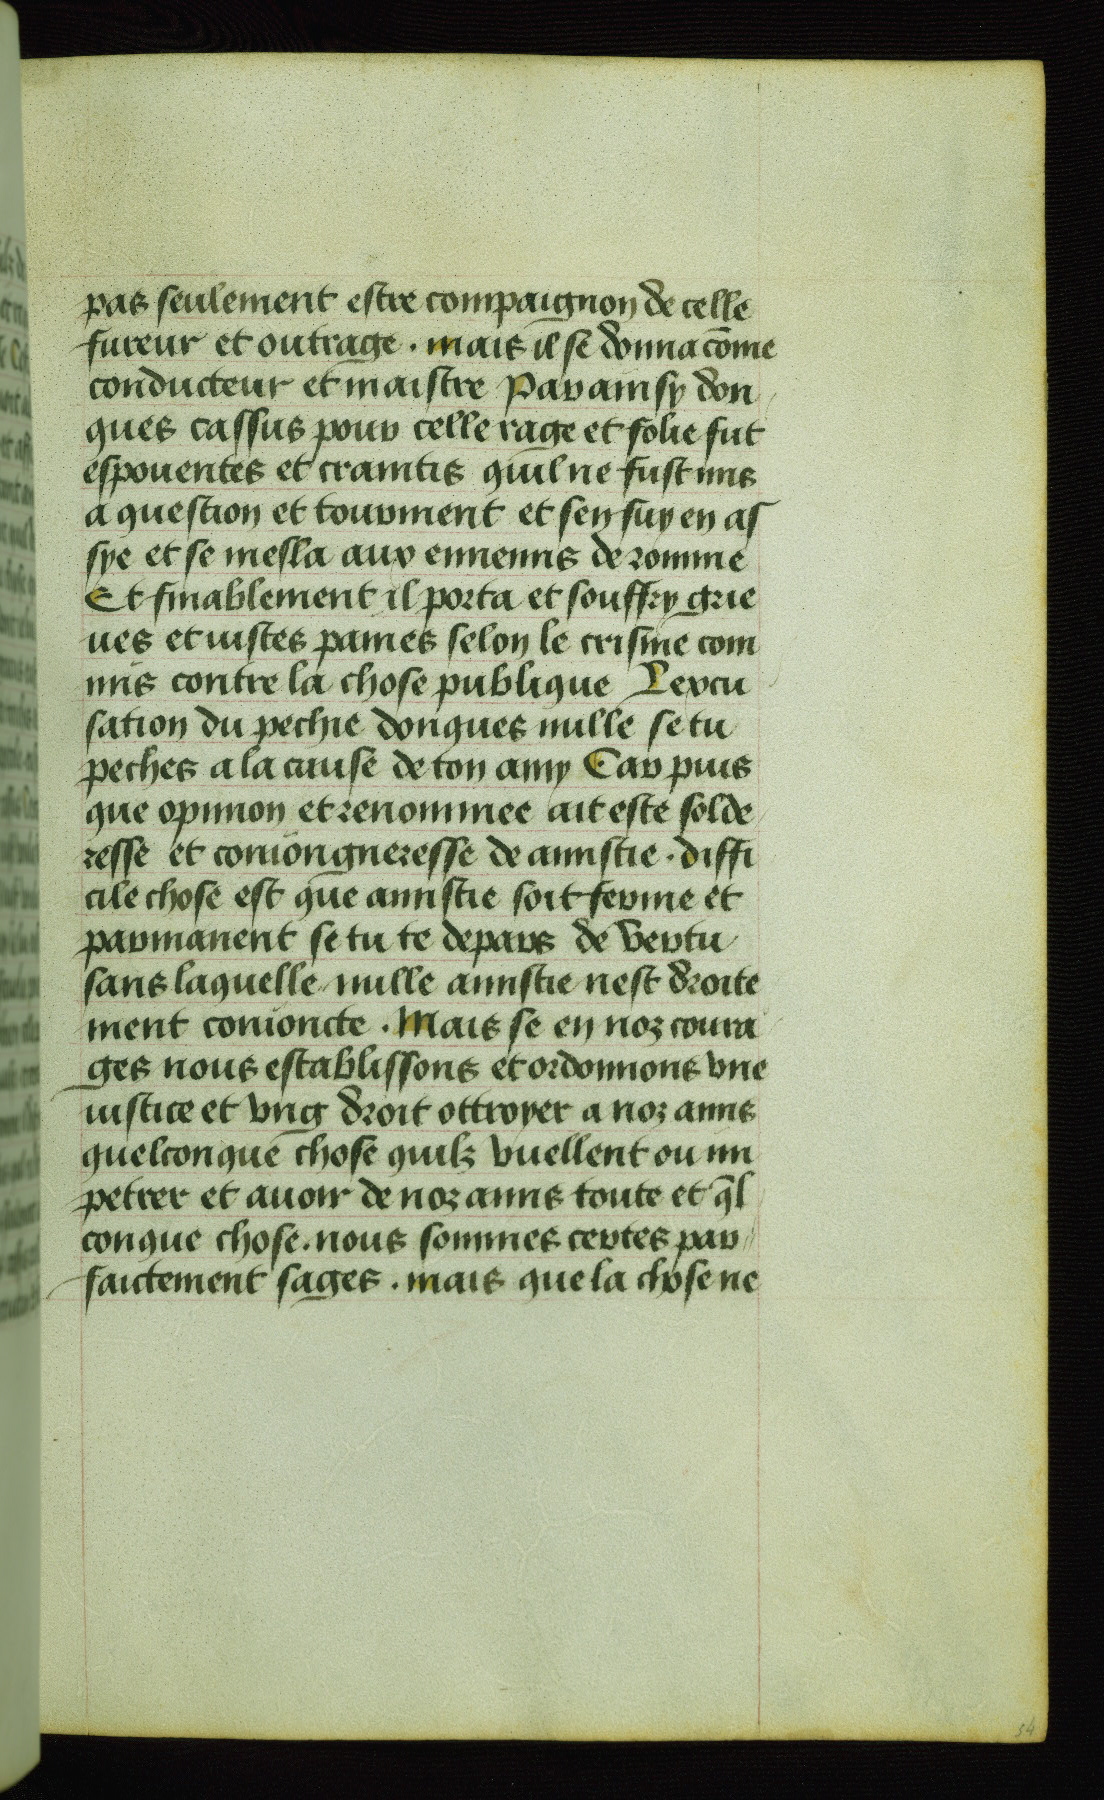 pas seulement estre compaignon de celle
fureur et outrage . mais il se donna cōme
conducteur et maistre Par ainsy don
ques cassus pour celle rage et folie fut
espouentes et craintis quil ne fust mis
a question et tourment et sen fuy en as
sye et se mesla aux ennemis de romme
Et finablement il porta et souffry grie
ues et iustes paines selon le crisme com
mis contre la chose publique Lexcu
sation du pechie donques nulle se tu
peches a la cause de ton amy Car puis
que opinion et renommee ait este solde
resse et conioingneresse de amistie . diffi
cile chose est que amistie soit ferme et
parmanent se tu te depars de vertu
sans laquelle nulle amistie nest droite
ment conioncte . Mais se en noz coura
ges nous establissons et ordonnons vne
iustice et vng droit ottroyer a noz amis
quelconque chose quilz vuellent ou im
petrer et auoir de noz amis toute et q̄l
conque chose . nous sommes certes par
faictement sages . mais que la chose ne
54